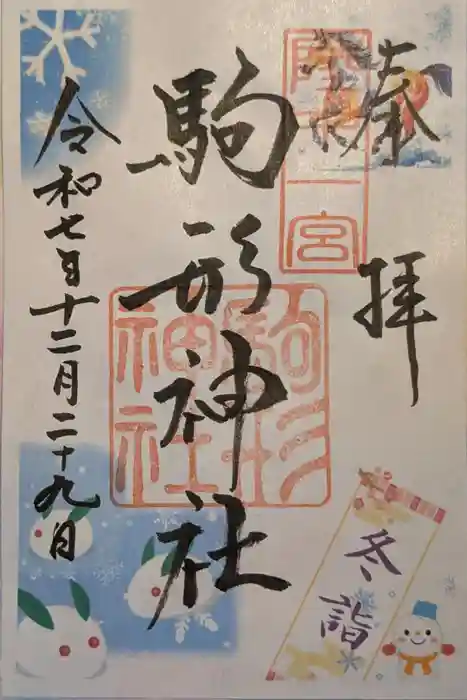 奉拝
陸中一宮
駒形神社
駒形
神社
令和七年十二月二十九日
冬詣